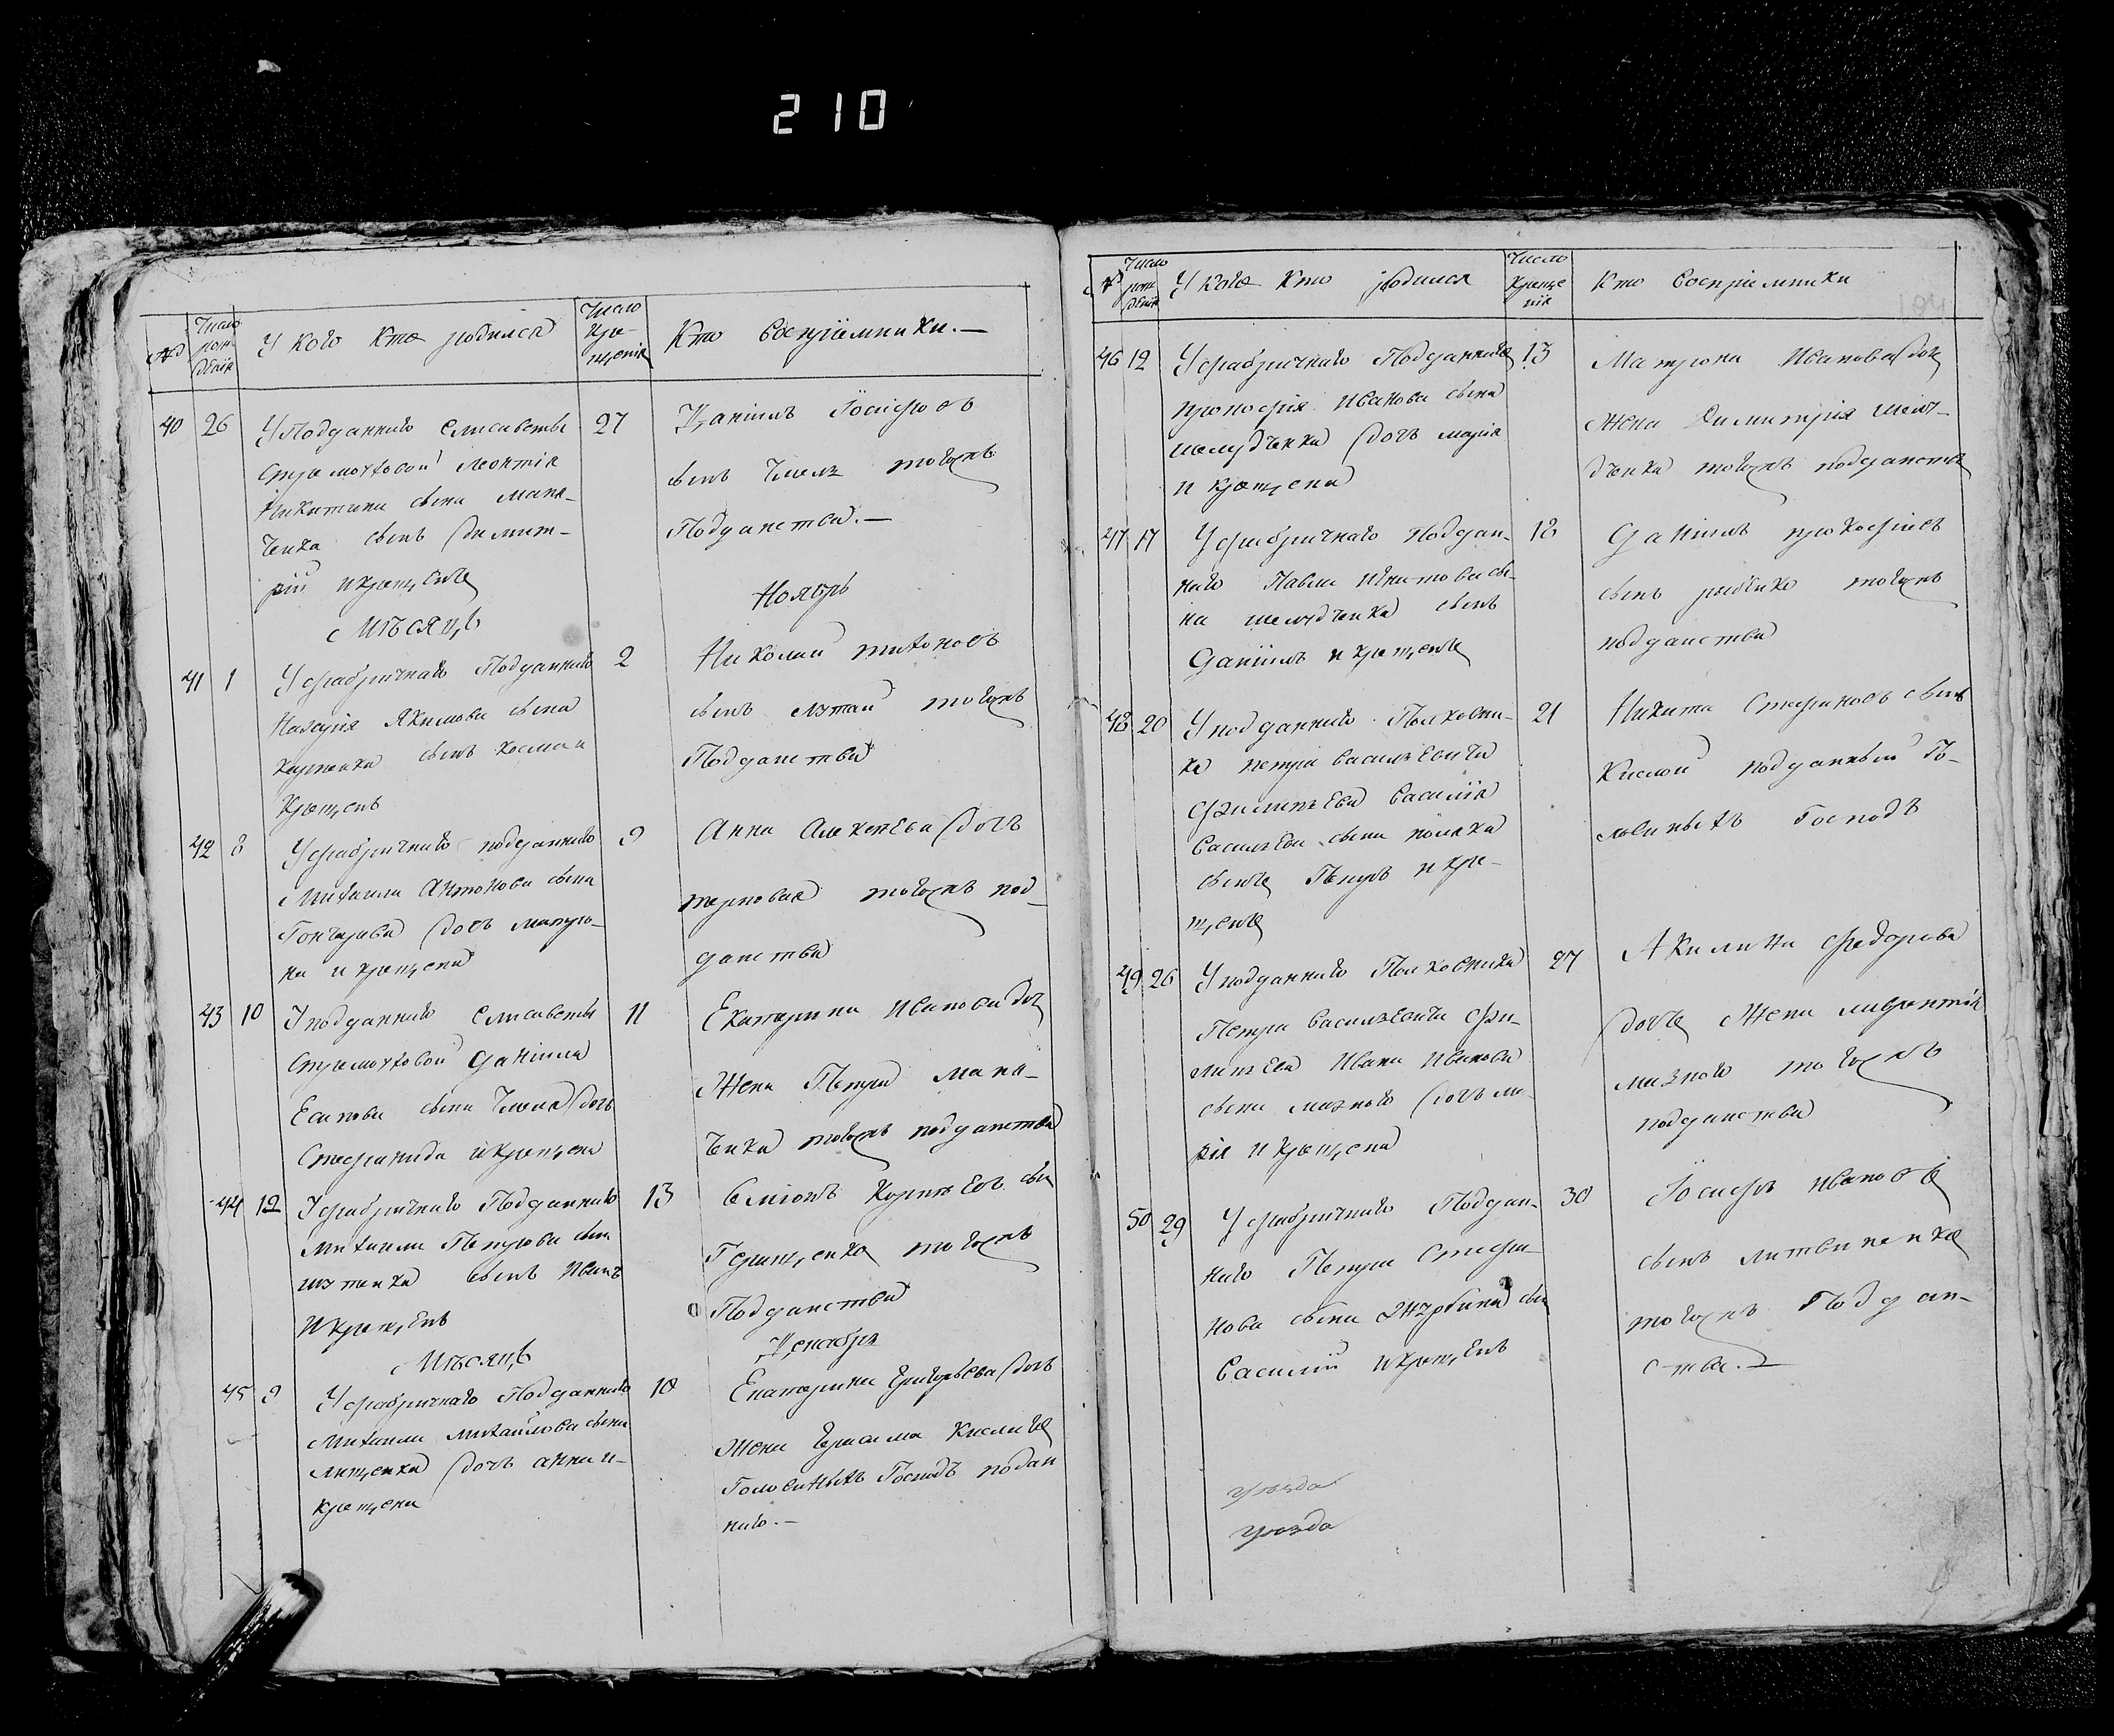 210
№
Число рождения
У кого кто родился
Число крещения
Кто восприемники.—
40 26
У Подданного Елисаветы
Стремоуховой Леонтія
Никитина сына Мана-
ченка сынъ Димит-
рій и крещенъ
27
Даніилъ Іосифовъ
сынъ Чмель тогожъ
Подданства.—
Мѣсяцъ Ноябрь
41 1
У фабричнаго Подданнаго
Назарія Якимова сына
сынъ Косма и
Крещенъ
2
Николай Тихоновъ
сынъ тогожъ
Подданства
42 8
У фабричнаго подданнаго
Михаила Антонова сына
Гончарова дочь Матро-
на и крещена
9
Анна Алексеева дочь
тогожъ под-
данства
43 10
У подданнаго Елисаветы
Стремоуховой Даніила
Есипова сына Чмеля дочь
Стефанида и крещена
11
Екатерина Иванова доч
Жена Петра Мана-
ченка тогожъ подданства
44 12
У фабричнаго Подданнаго
Михаила Петрова сына
сынъ Иванъ
И крещенъ
13
Симіонъ сын
Геращенко тогожъ
Подданства
Мѣсяцъ Декабрь
45 9
У фабричнаго Подданнаго
Михаила Михайлова сына
дочь Анна и
крещена
10
Екатерина Григорьева дочь
Жена Герасима Кислаго
Головиныхъ Господъ поддан
наго.—
№
Число рождения
У кого Кто родился
Число Крещенія
Кто Восприемники
46 12
У фабричнаго Подданнаго
Прокофія Иванова сына
Шелудченка дочь Марія
и крещена
13
Матрона Иванова доч
Жена Димитрія Шелу-
дченка тогожъ подданства
47 17
У фабричнаго Поддан-
наго Павла Игнатова сы-
на Шелудченка сынъ
Даніилъ и крещенъ
18
Даніилъ Прокофіевъ
сынъ тогожъ
подданства
48 20
У подданнаго Полковни-
ка Петра Васильевича
Филипьева Василія
Васильева сына
сынъ Петръ и кре-
щенъ
21
Никита Стефановъ сынъ
Кислой подданный Го-
ловиныхъ Господъ
49 26
У подданнаго Полковника
Петра Васильевича Фи-
липьева Ивана Иванова
сына Мазного дочь Ма-
рія и крещена
27
Акилина Федорова
дочь Жена Лаврентія
Мазного тогожъ
подданства
50 29
У фабричнаго Поддан-
наго Петра Стефа-
нова сына сын
Василій и крещенъ
30
Іосифъ Ивановъ
сынъ Литвиненко
тогожъ Поддан-
ства.
уезда
уезда